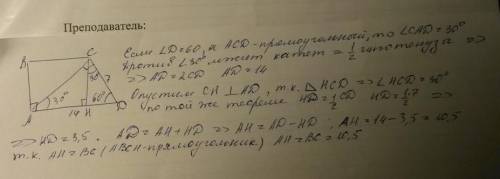 Преподаватель:
Если ∠D=60, а ACD-прямоугольный, то ∠CAD=30°
против ∠30° лежит катет = 1/2 гипотенуза =>
=> AD=2CD AD=14
Опустим CH ⊥ AD, т.к. △HCD => ∠HCD=30°
по той же теореме HD=1/2 CD HD=1/2·7 =>
=> HD=3,5. AD=AH+HD => AH=AD-HD; AH=14-3,5=10,5
т.к. AH=BC (ABCH-прямоугольник) AH=BC=10,5
B C
30° 7
30° 60°
A 14 H D